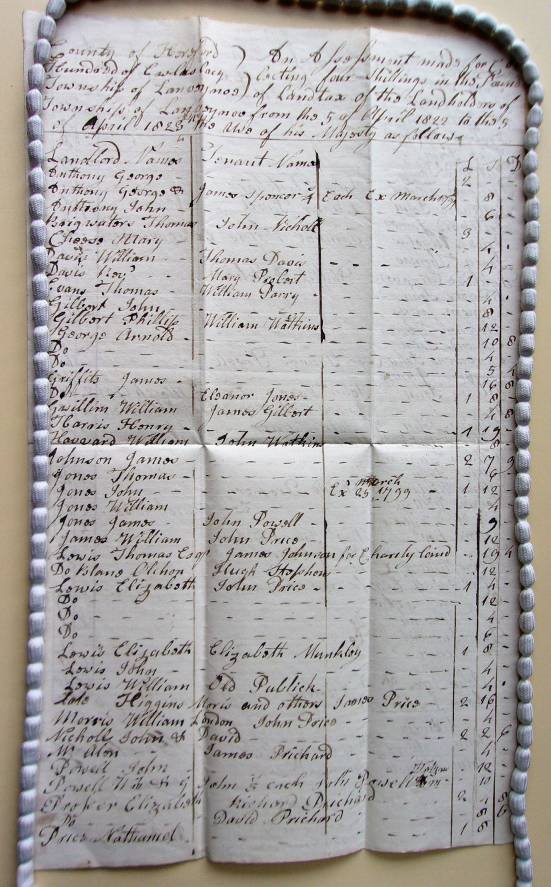 County of Hereford } An Assessment made for Col
Hundred of Ewlas Lacy } lecting four Shillings in the Pound
Township of } of Landtax of the Landholders of
Township of from the 5 of April 1822 to the 5
of April 1823 the Use of his Majesty as follows
Landlord Names Tenant Names £ S D
Anthony George 2
Anthony George & James Spencer ½ Each Ex March 8
Anthony John 6
Bridgwaters Thomas John Nicholl 3
Cheese Mary 4
Davis William Thomas Davis 4
Davis Mary Probert 1
Evans Thomas William Parry 4
Gilbert John 8
Gilbert Phillip William Watkins 12
George Arnold 10 8
Do 4
Do 5 4
Griffits James 16 8
Do Eleanor Jones 1 8
Gwillim William James Gilbert
Harris Henry 1 19
Hayward William John Watkins 8
Johnson James 2 7 9
Jones Thomas 6
Jones John Ex 25 March 1799 1 12
Jones William 4
Jones James John Powell 9
James William John Price 12
Lewis Thomas Esqr James Johnson for Charity Land 19 4
Do Blane Olchon Stephens 12
Lewis Elizabeth John Price 1 4
Do 12
Do 4
Do 6
Lewis Elizabeth Elizabeth Munkley 1 8
Lewis John 4
Lewis William Old Publick 4
Late Higgins Moris and others James Price 2 16
Morris William London John Price 4
Nicholl John & David 2 2 6
Mr James Prichard 4
Powell John 12
Powell Wm & G John ½ each John Powell 10
Proker Elizabeth Richard Prichard 2 4 8
Do David Prichard 8 6
Price Nathaniel 1 8